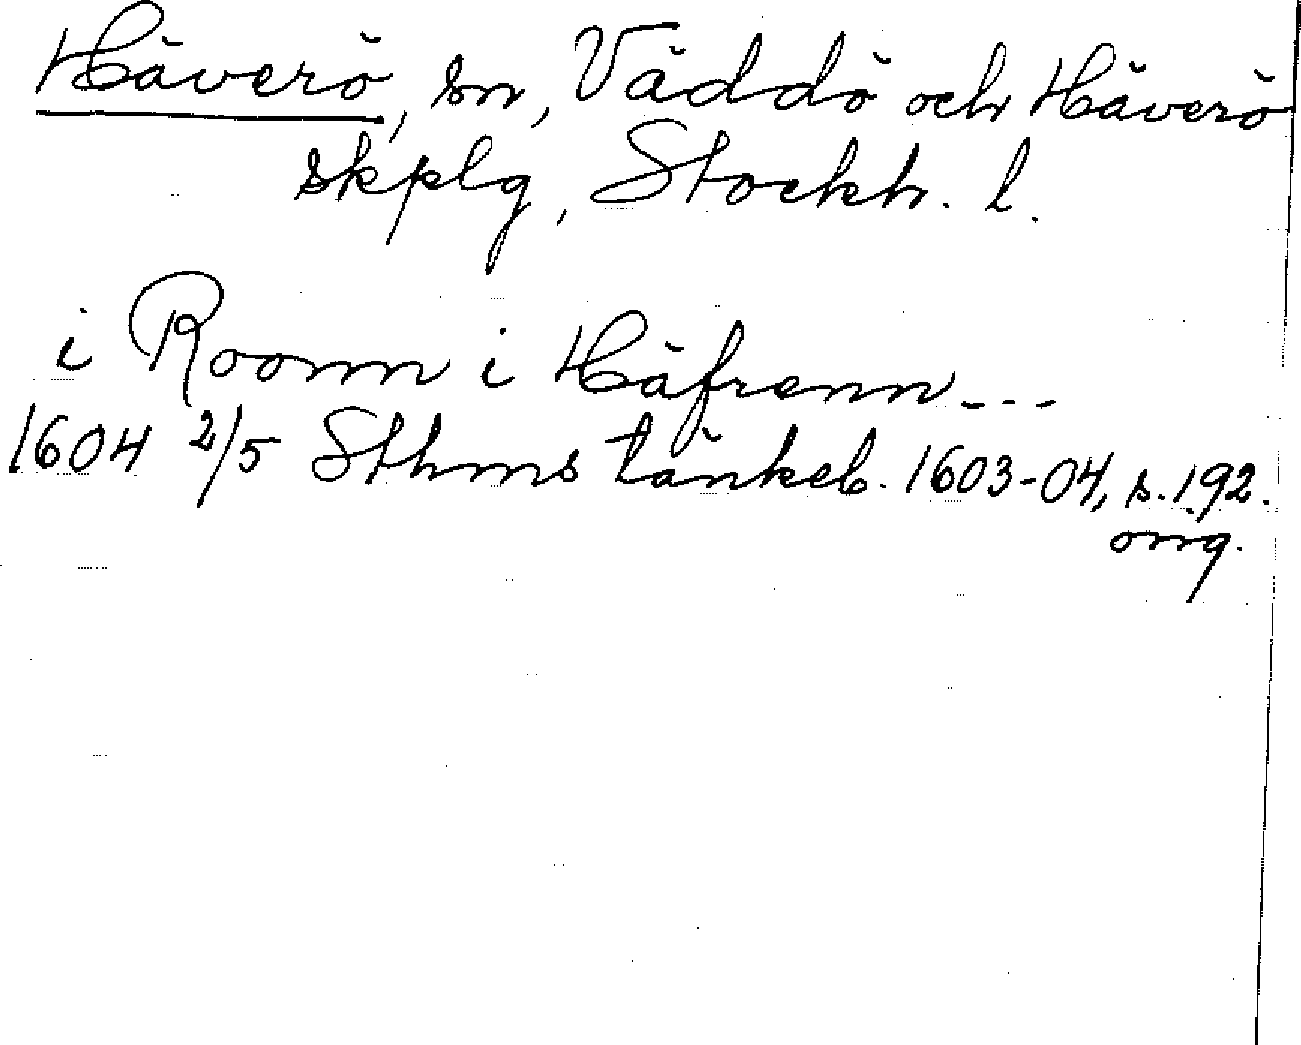 Häverö, sn, Väddö och Häverö
skplg, Stockh. l.
i Roomn i Häfrenn---
1604 2/5 Sthms tänkeb. 1603-04, s. 192.
orig.